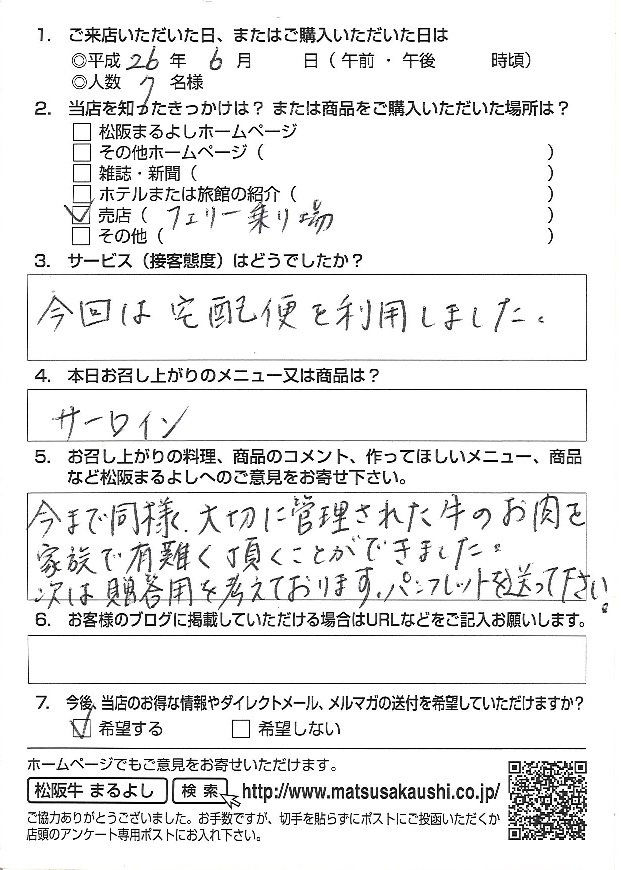 1. ご来店いただいた日、またはご購入いただいた日は
◎平成 26 年 6 月 日（午前・午後 時頃）
◎人数 7 名様
2. 当店を知ったきっかけは？ または商品をご購入いただいた場所は？
□ 松阪まるよしホームページ
□ その他ホームページ（ ）
□ 雑誌・新聞（ ）
□ ホテルまたは旅館の紹介（ ）
☑ 売店（ フェリー乗り場 ）
□ その他（ ）
3. サービス（接客態度）はどうでしたか？
今回は宅配便を利用しました。
4. 本日お召し上がりのメニュー又は商品は？
サーロイン
5. お召し上がりの料理、商品のコメント、作ってほしいメニュー、商品
など松阪まるよしへのご意見をお寄せ下さい。
今まで同様、大切に管理された牛のお肉を
家族で有難く頂くことができました。
次は贈答用を考えております。パンフレットを送って下さい。
6. お客様のブログに掲載していただける場合はURLなどをご記入お願いします。
7. 今後、当店のお得な情報やダイレクトメール、メルマガの送付を希望していただけますか？
☑ 希望する □ 希望しない
ホームページでもご意見をお寄せいただけます。
松阪牛 まるよし 検索 http://www.matsusakaushi.co.jp/
ご協力ありがとうございました。お手数ですが、切手を貼らずにポストにご投函いただくか
店頭のアンケート専用ポストにお入れ下さい。